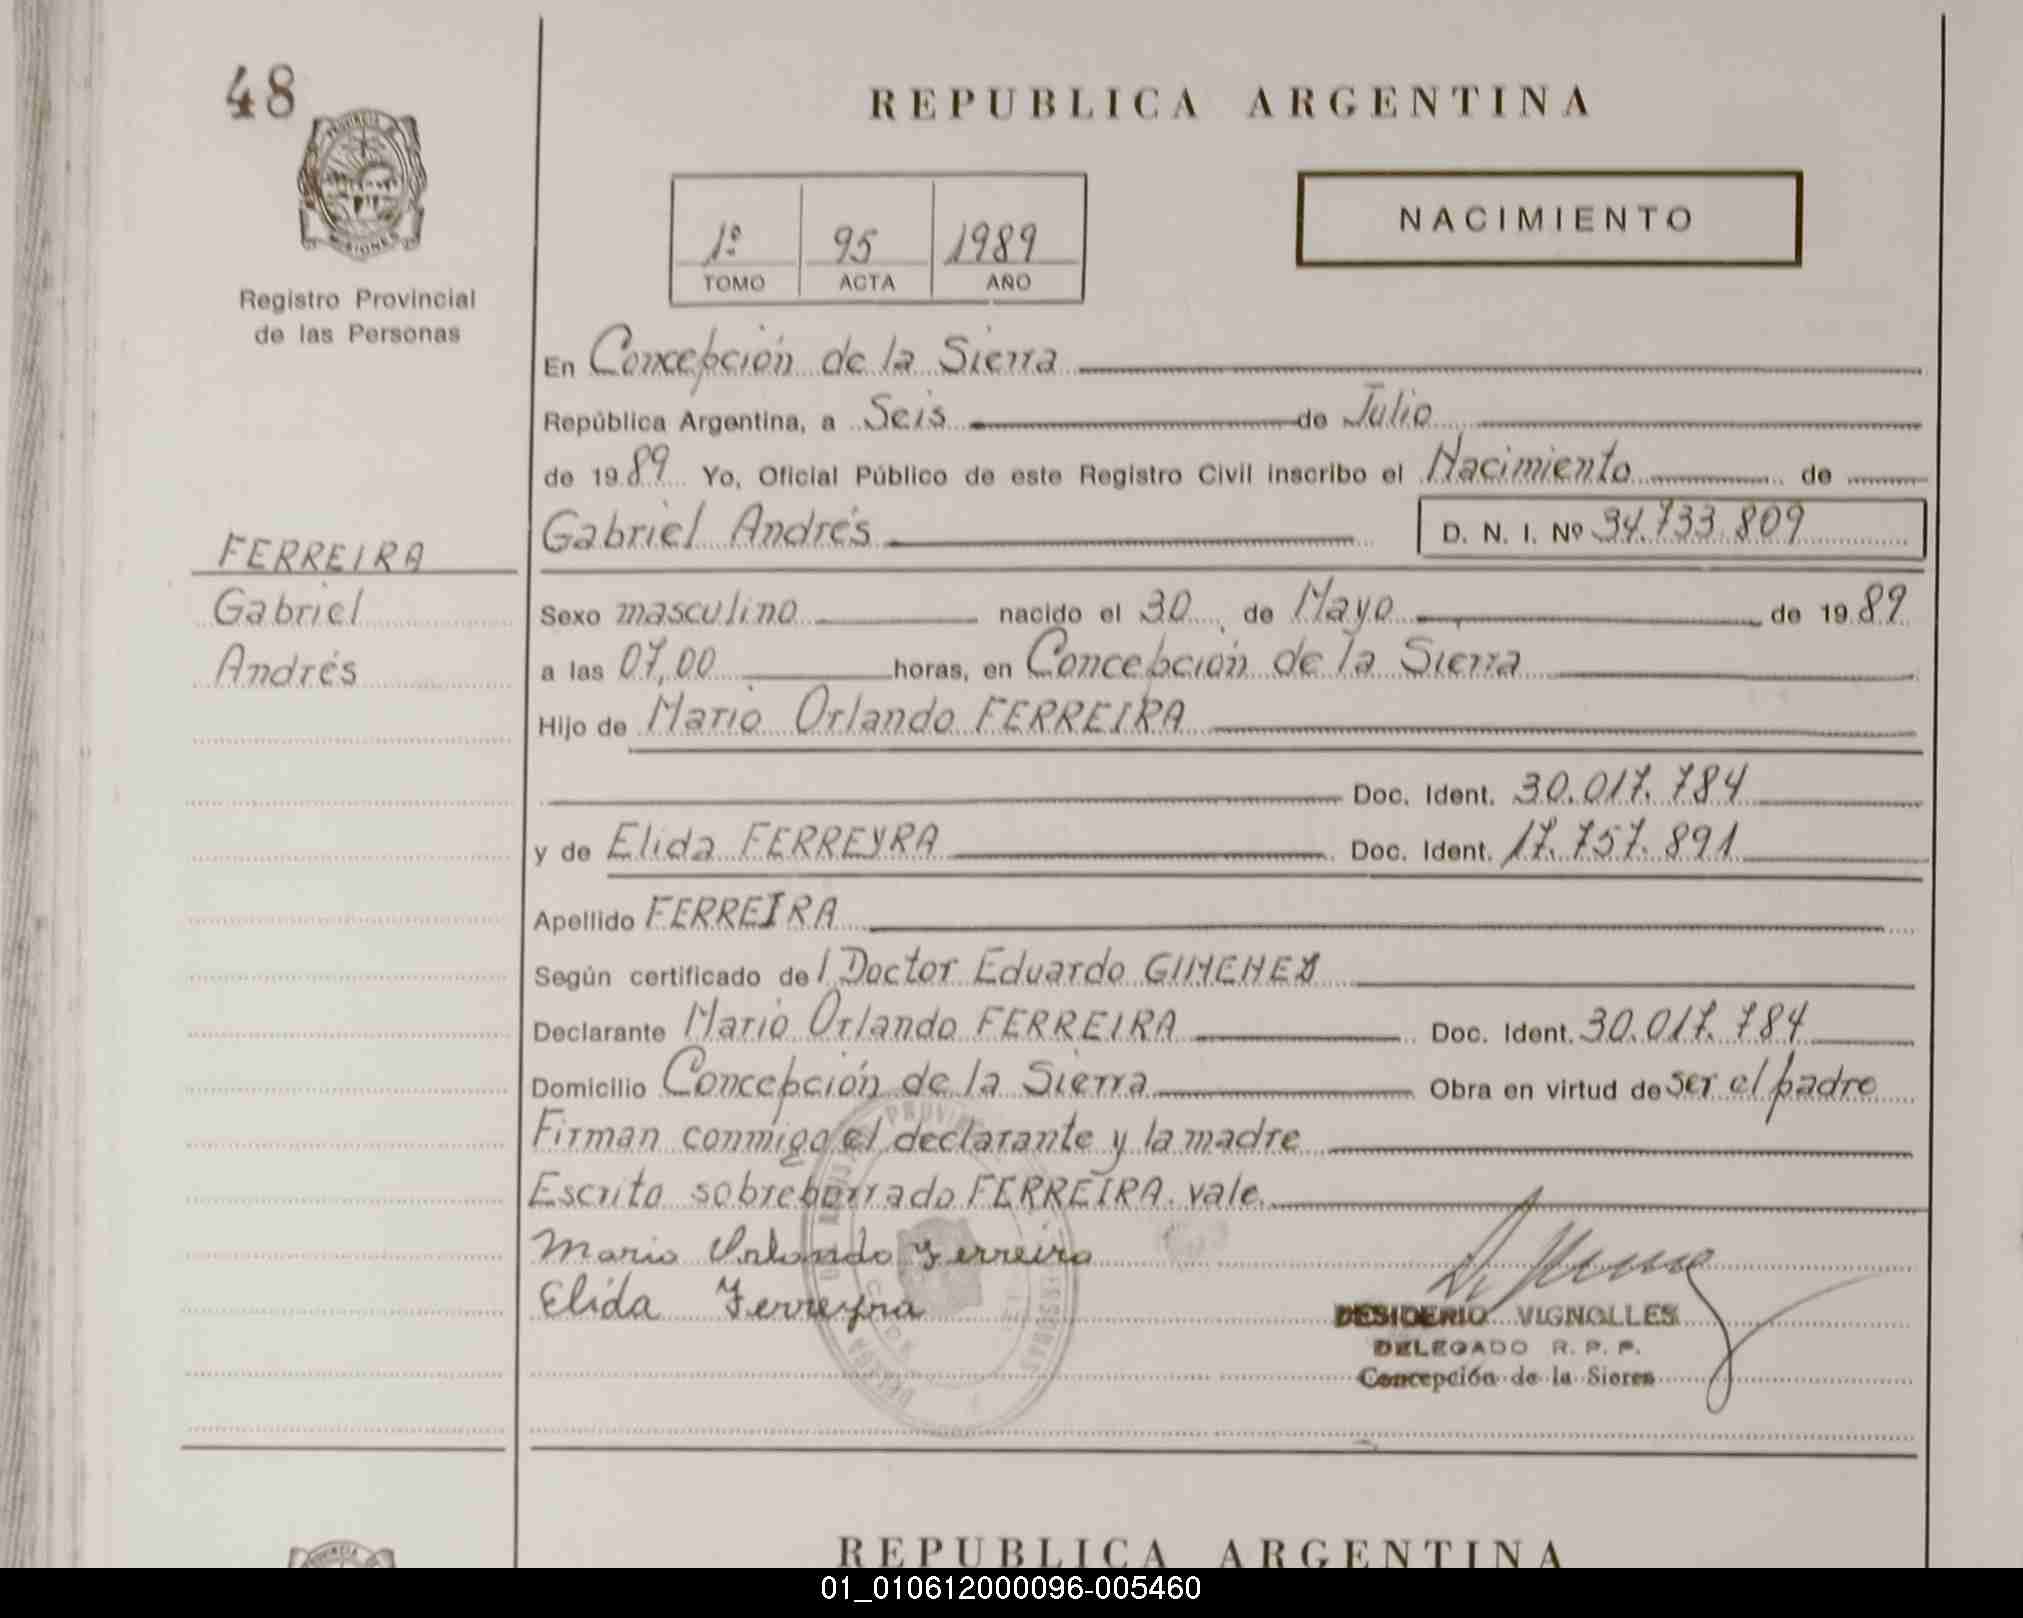 48
REPUBLICA ARGENTINA
NACIMIENTO
1º 95 1989
TOMO ACTA AÑO
Registro Provincial
de las Personas
En Concepción de la Sierra
República Argentina, a Seis de Julio
de 1989 Yo, Oficial Público de este Registro Civil inscribo el Nacimiento de
Gabriel Andrés D. N. I. Nº 34.733.809
FERREIRA
Gabriel
Andrés
Sexo masculino nacido el 30 de Mayo de 1989
a las 07,00 horas, en Concepción de la Sierra
Hijo de Mario Orlando FERREIRA
Doc. Ident. 30.017.784
y de Elida FERREYRA Doc. Ident. 17.757.891
Apellido FERREIRA
Según certificado del Doctor Eduardo GIMENEZ
Declarante Mario Orlando FERREIRA Doc. Ident. 30.017.784
Domicilio Concepción de la Sierra Obra en virtud de ser el padre
Firman conmigo el declarante y la madre
Escrito sobreborrado FERREIRA. vale.
Mario Orlando Ferreira
Elida Ferreyra
DESIDERIO VIGNOLLES
DELEGADO R. P. P.
Concepción de la Sierra
REPUBLICA ARGENTINA
01_010612000096-005460